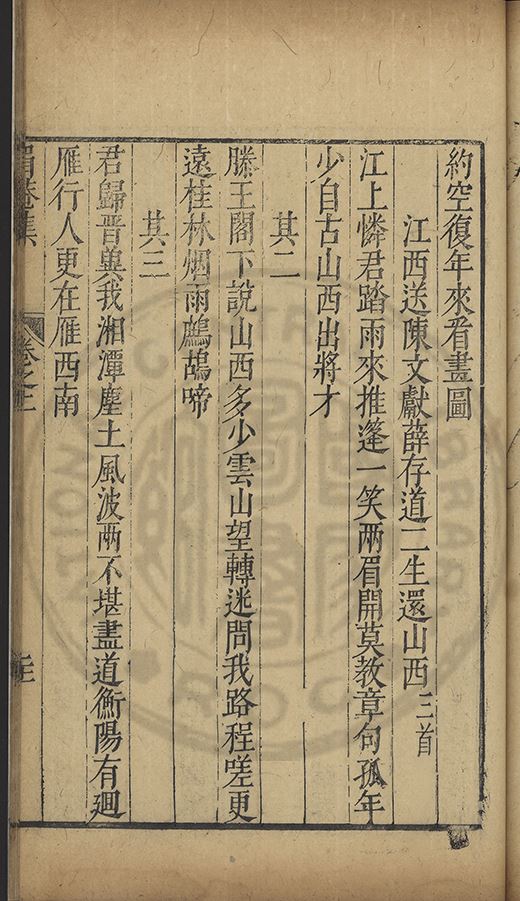 約空復年來看畫圖
江西送陳文獻薛存道二生還山西三首
江上憐君踏雨來推篷一笑兩眉開莫教章句孤年
少自古山西出將才
其二
滕王閣下說山西多少雲山望轉迷問我路程嗟更
遠桂林烟雨鷓鴣啼
其三
君歸晉冀我湘潭塵土風波兩不堪盡道衡陽有廻
雁行人更在雁西南
卷之三